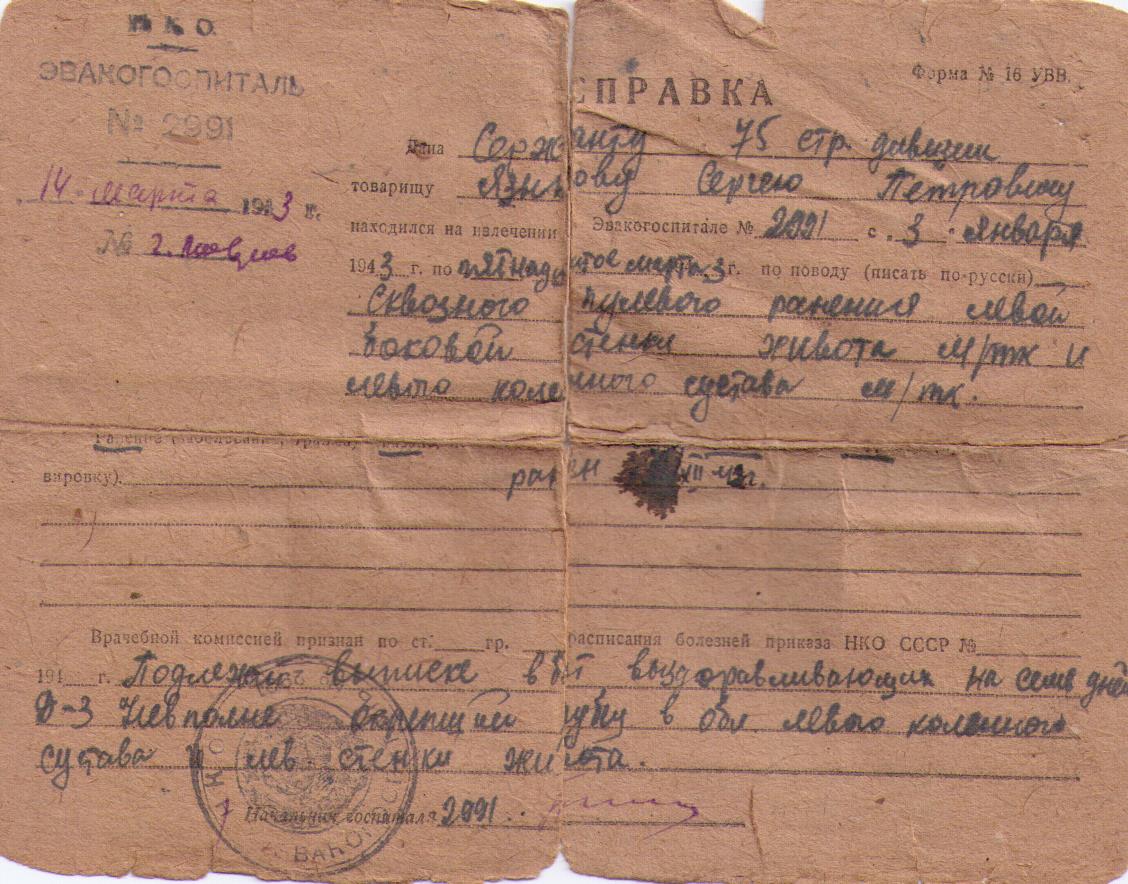 Н К О.
ЭВАКОГОСПИТАЛЬ
№ 2991
14 марта 1943 г.
№
Форма № 16 УВВ.
СПРАВКА
Дана Сержанту 75 стр. дивизии
товарищу Языкову Сергею Петровичу
находился на излечении Эвакогоспитале № 2991 с 3 января
1943 г. по пятнадцатое марта 3 г. по поводу (писать по-русски)
Сквозного пулевого ранения левой
боковой стенки живота м/тк и
левого коленного сустава м/тк.
вировку). ранен XII 42г.
Врачебной комиссией признан по ст. гр. расписания болезней приказа НКО СССР №
194 г. Подлежит выписке в выздоравливающих на семь дней
Д-3 Невполне окрепший рубец в обл левого коленного
сустава и лев стенки живота.
Начальник госпиталя 2991